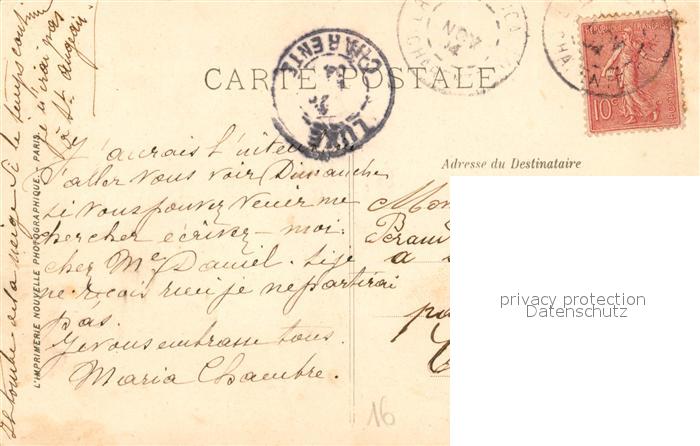 CARTE POSTALE
Adresse du Destinataire
LUXÉ
CHARENTE
NOV
04
10c
J'aurais l'intention
d'aller vous voir Dimanche
si vous pouvez venir me
chercher écrivez-moi
chez Me Daniel. Si je
ne reçois rien je ne partirai
pas.
Je vous embrasse tous.
Maria Chambre.
Il tombe de la neige si le temps continue
je n'irai pas
à St
L'IMPRIMERIE NOUVELLE PHOTOGRAPHIQUE. PARIS.
Mon
a
privacy protection
Datenschutz
16